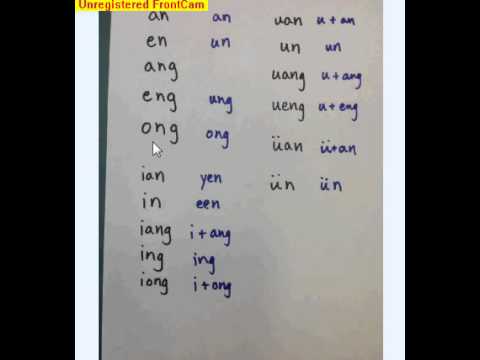 Unregistered FrontCam
an an
en un
ang
eng ung
ong ong
ian yen
in een
iang i + ang
ing ing
iong i + ong
uan u + an
un un
uang u + ang
ueng u + eng
üan ü+an
ün ün